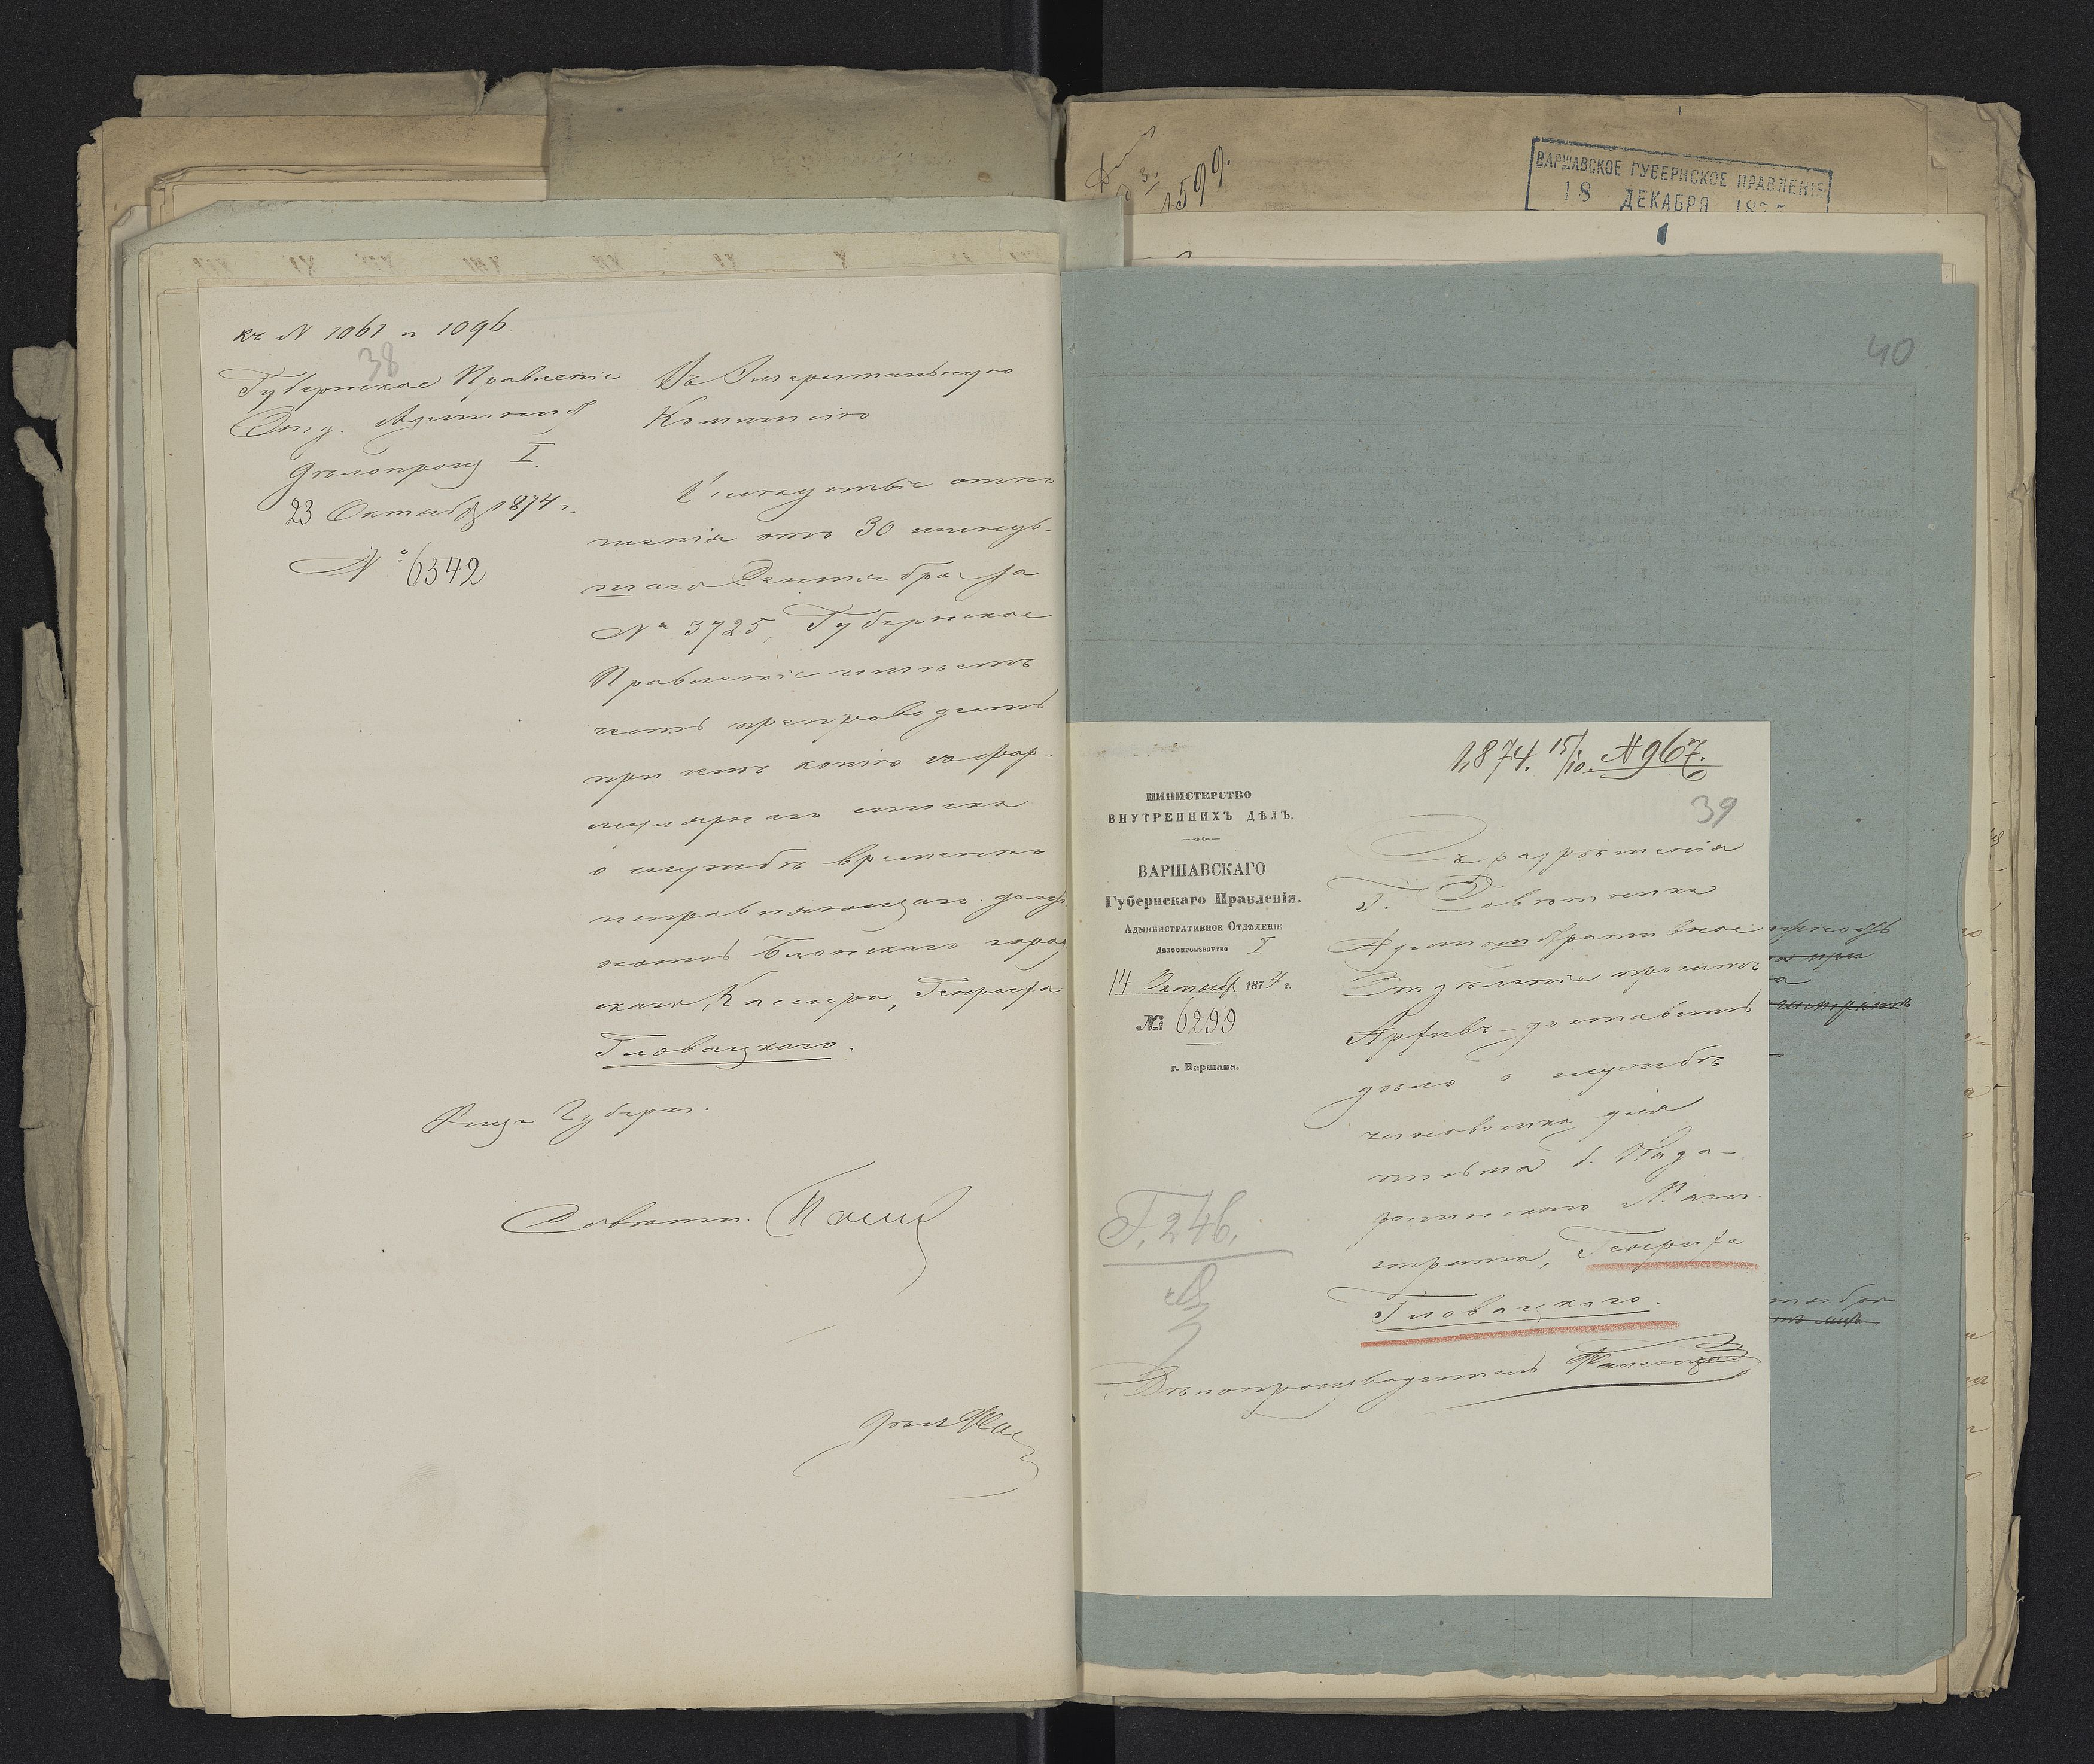 къ N 1061 и 1096.
38
Губернское Правленіе
Отд. Админист
Дѣлопроиз I.
23 Октября 1874 г.
№ 6542
Въ Эмеритальную
Коммисію
Вслѣдствіе отно
шенія отъ 30 минув-
шаго Сентября за
№ 3725, Губернское
Правленіе имѣетъ
честь препроводить
при семъ копію съ фор-
мулярнаго списка
о службѣ временно
исправляющаго долж
ность Блонскаго город
скаго Кассира, Генриха
Гловацкаго.
Вице Губерн.
Совѣтн.
Дѣл
599.
ВАРШАВСКОЕ ГУБЕРНСКОЕ ПРАВЛЕНІЕ
18 ДЕКАБРЯ 187
40
1874. 15/10. № 967.
39
МИНИСТЕРСТВО
ВНУТРЕННИХЪ ДѢЛЪ.
ВАРШАВСКАГО
Губернскаго Правленія.
Административное Отдѣленіе
Дѣлопроизводство I
14 Октяб 1874 г.
№ 6299
г. Варшава.
Съ разрѣшенія
Г. Совѣтника
Административное
Отдѣленіе проситъ
Архивъ доставить
дѣло о службѣ
чиновника для
письма б.
Маги
страта, Генриха
Гловацкаго.
Г. 246.
Дѣлопроизводитель